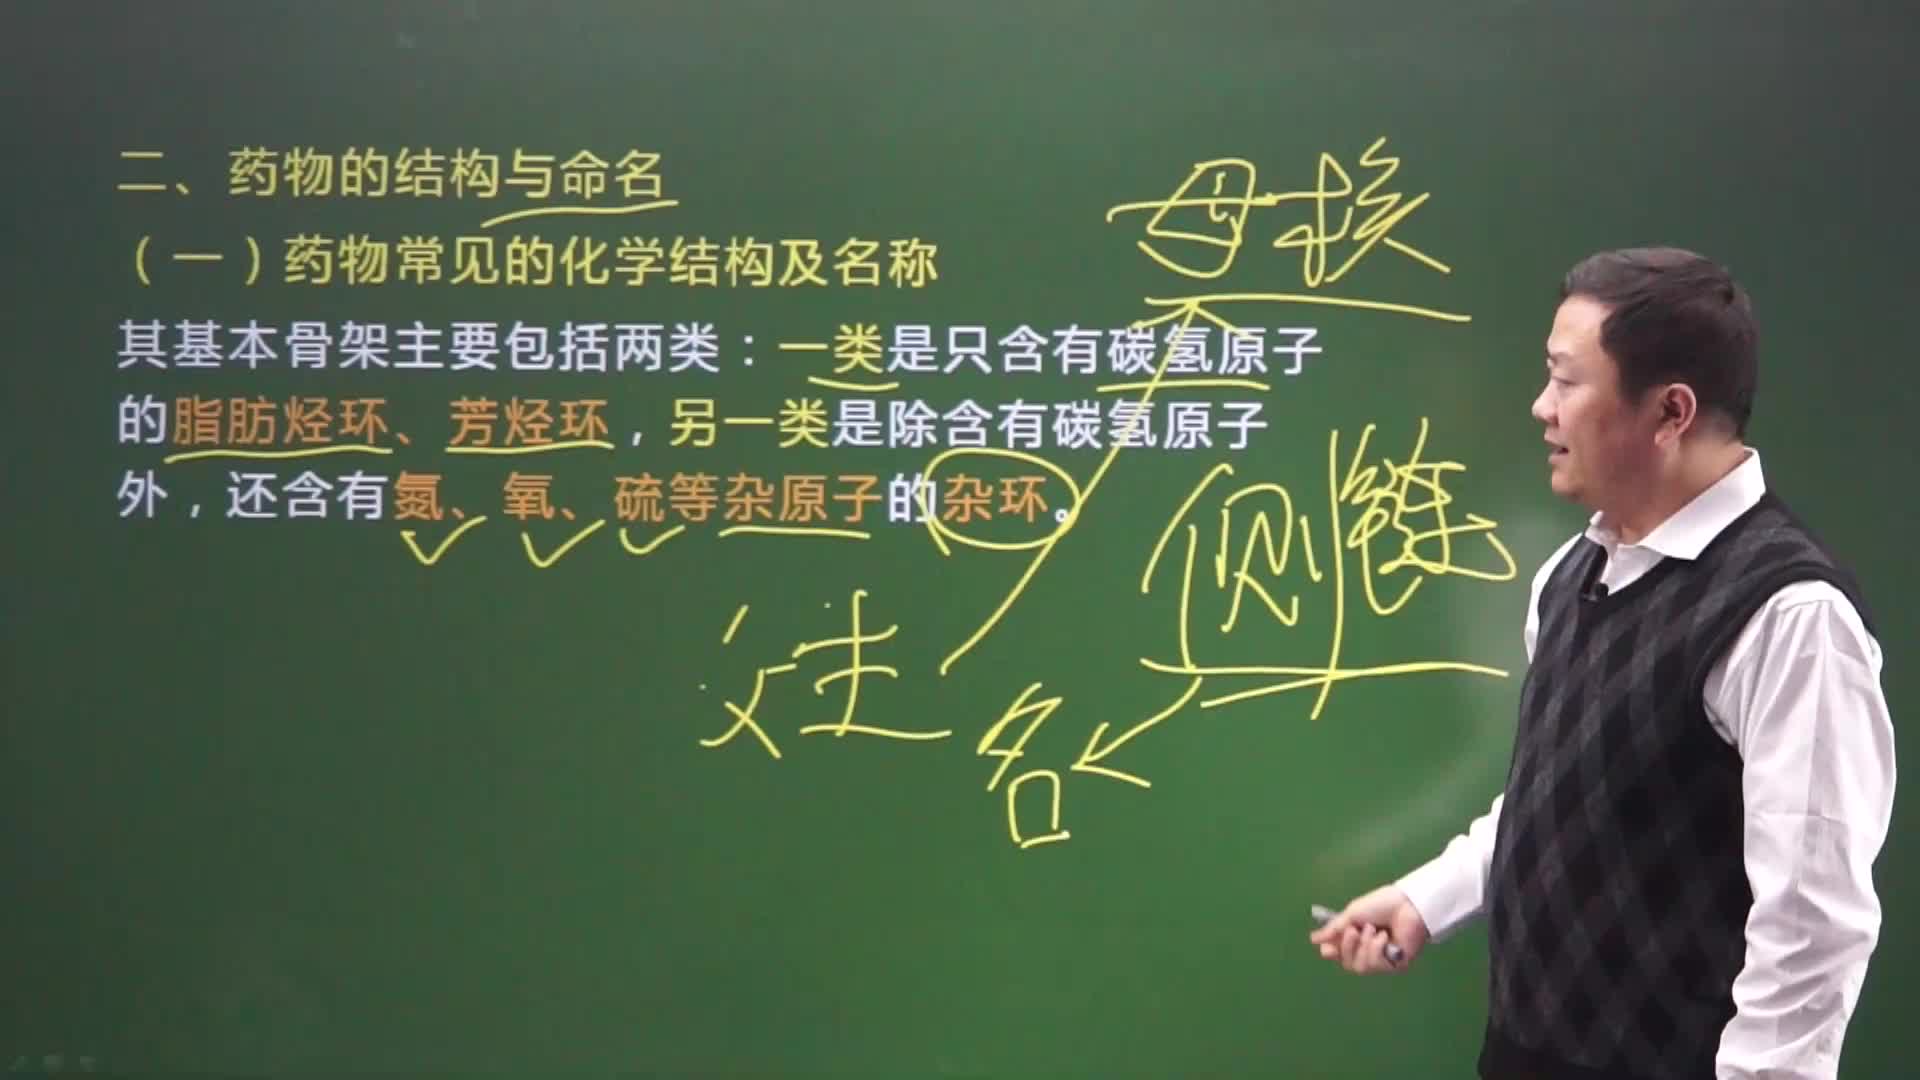 二、药物的结构与命名
（一）药物常见的化学结构及名称
其基本骨架主要包括两类：一类是只含有碳氢原子
的脂肪烃环、芳烃环，另一类是除含有碳氢原子
外，还含有氮、氧、硫等杂原子的杂环。
母核
侧链
名